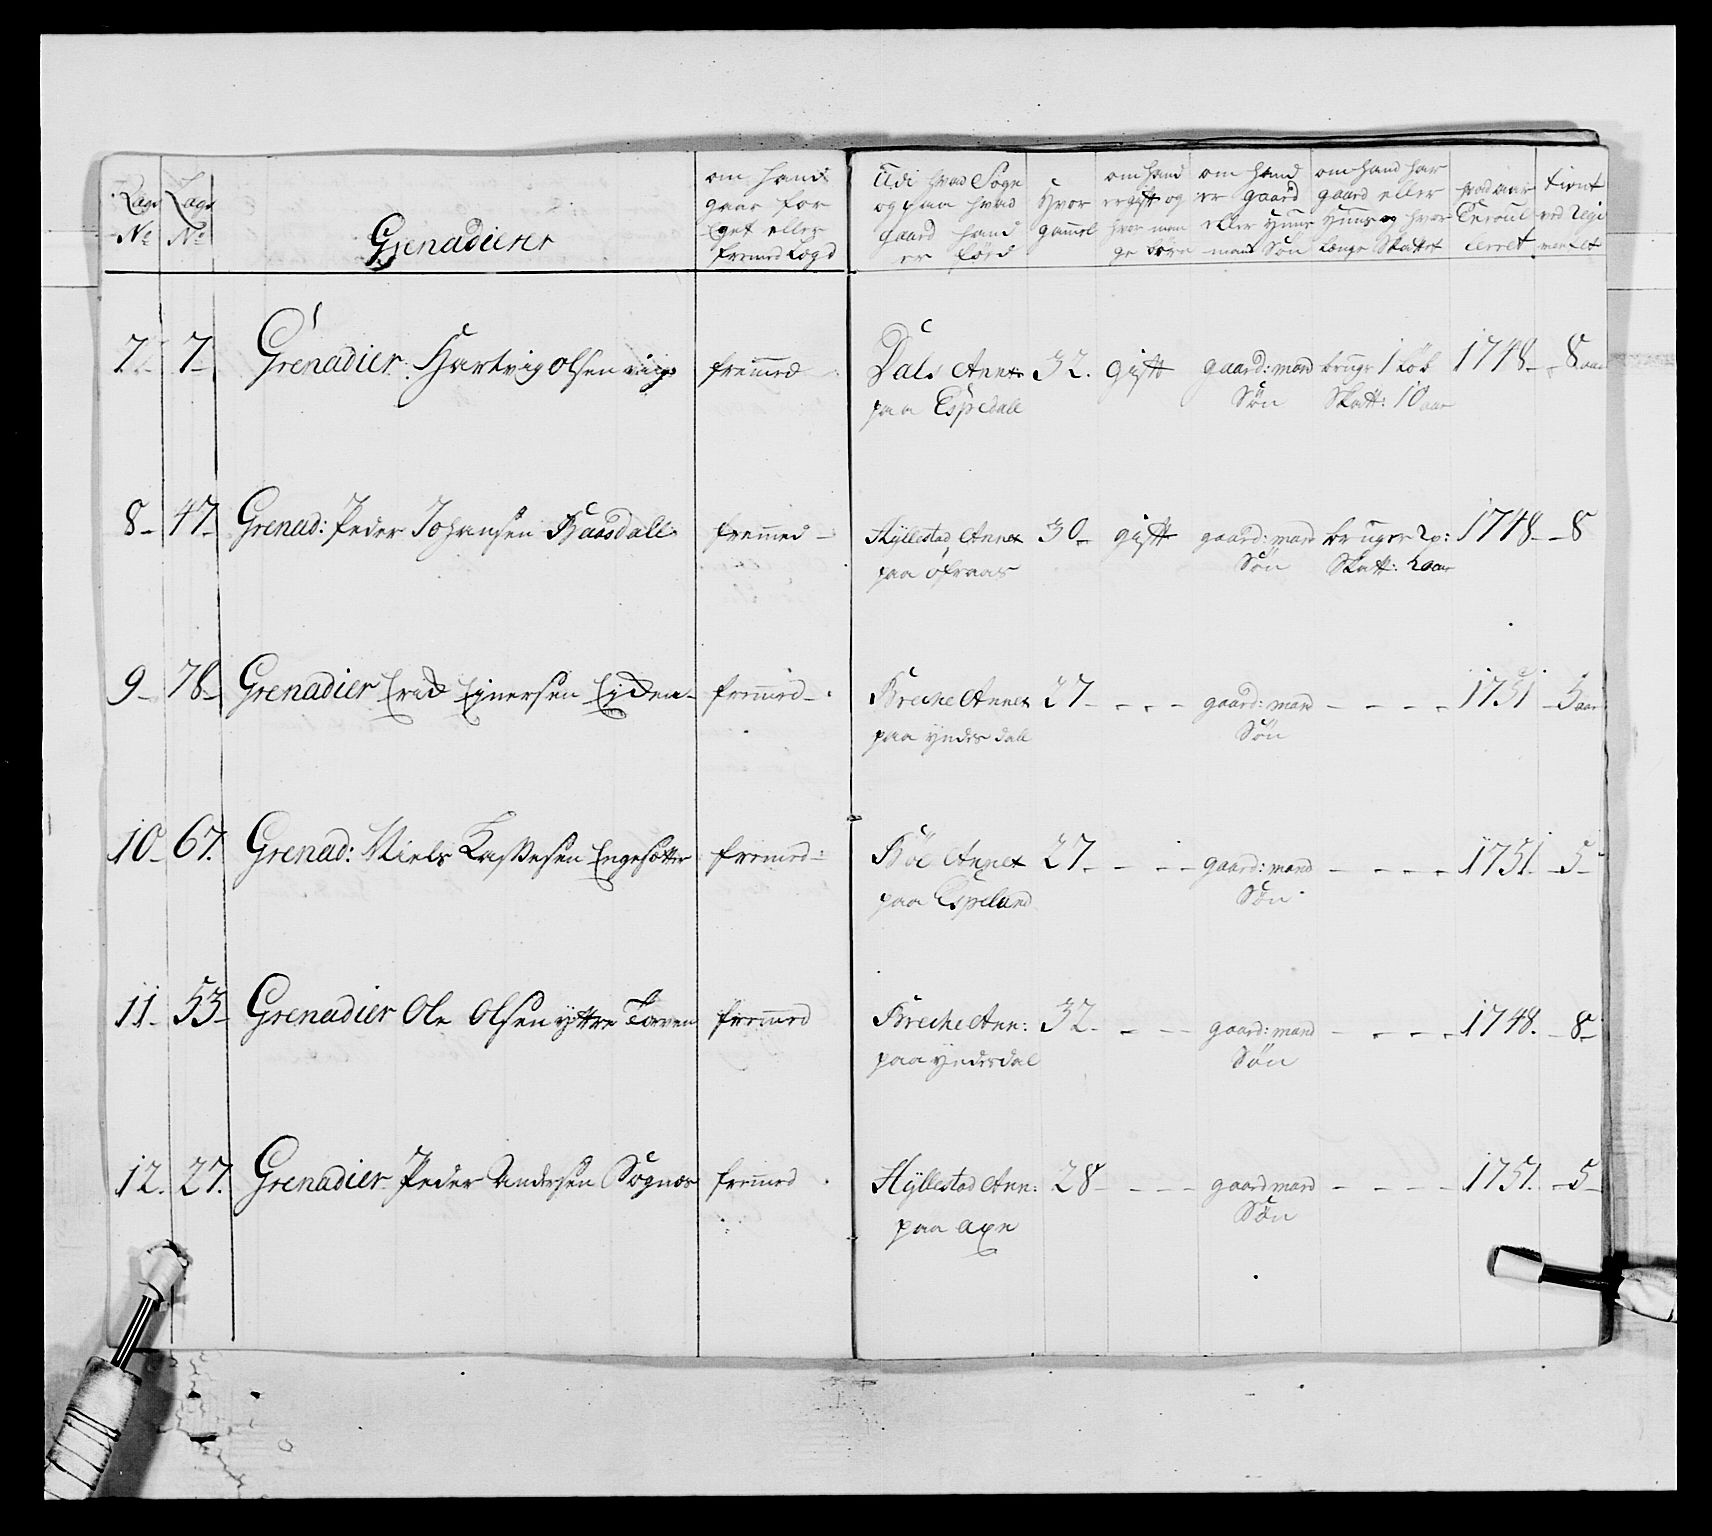 Lags No
Lags No
Grenadierer
om hand gaar for Eget eller fremed Lægd
Udi hvad Sogn og paa hvad gaard hand er fød
Hvor gammel
om hand er gift og hvor mange børn
om hand er gaard eller Huus mand Søn
om hand har gaard eller Huus og hvor Længe Skattet
hvad aar Enroulleret
tient ved Regimentet
7. 7. Grenadier Hartvig Olsen fremmed Dals Annex 32. gift gaard: mand bruger 1 Løb 1748 8 aar
paa Espedall Søn Skatt: 10 aar
8 47 Grenad: Peder Johansen Haasdall fremmed Hyllestad Annex 30 gift gaard: mand bruger 1748 8
paa Øfraas Søn Skatt: 2 aar
9 78 Grenadier Erik Ejnersen Eiden fremmed Breche Annex 27 gaard: mand 1751 5 aar
paa Yndesdall Søn
10 67. Grenad: Niels Lassesen Engesætter fremmed Böe Annex 27 gaard: mand 1751 5
paa Espeland Søn
11 53 Grenadier Ole Olsen yttre fremmed Breche Ann: 32 gaard: mand 1748. 8
paa Yndesdal Søn
12. 27. Grenadier Peder Andersen Sognes fremmed Hyllestad Ann: 28 gaardmand 1751. 5
paa Søn